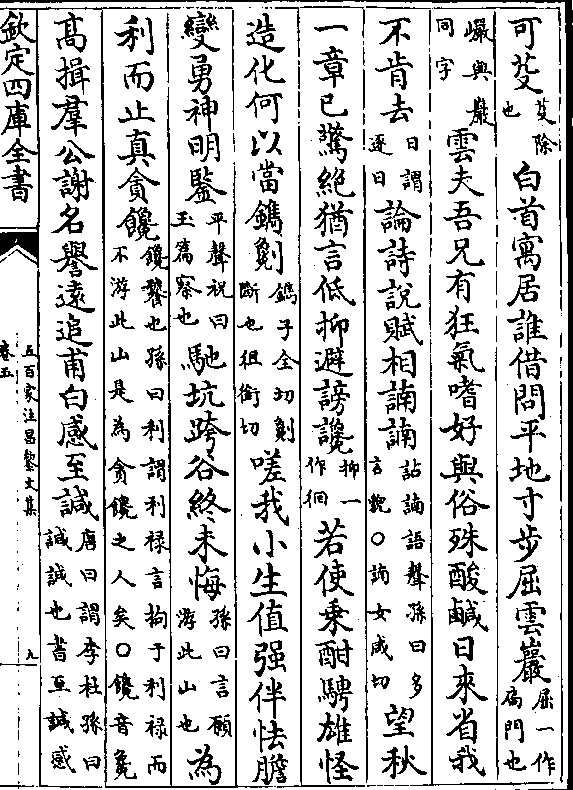 可芟芟除也白首寓居誰借問平地寸步屈雲巖屈一作扃門也
巗與巖同字雲夫吾兄有狂氣嗜好與俗殊酸鹹日來省我
不肯去日謂逐日論詩說賦相諵諵詀諵語聲孫曰多言貌○諵女咸切望秋
一章已驚絶猶言低抑避謗讒抑一作徊若使乗酣騁雄怪
造化何以當鐫劖鐫子全切劖斷也徂銜切嗟我小生值强伴怯膽
變勇神明鑒平聲祝曰玉篇察也馳坑跨谷終未悔孫曰言願游此山也為
利而止真貪饞饞饕也孫曰利謂利禄言拘于利禄而不游此山是為貪饞之人矣○饞音毚
髙揖羣公謝名譽逺追甫白感至諴唐曰謂李杜孫曰諴諴也書至諴感
欽定四庫全書
五百家注昌黎文集
卷五
九